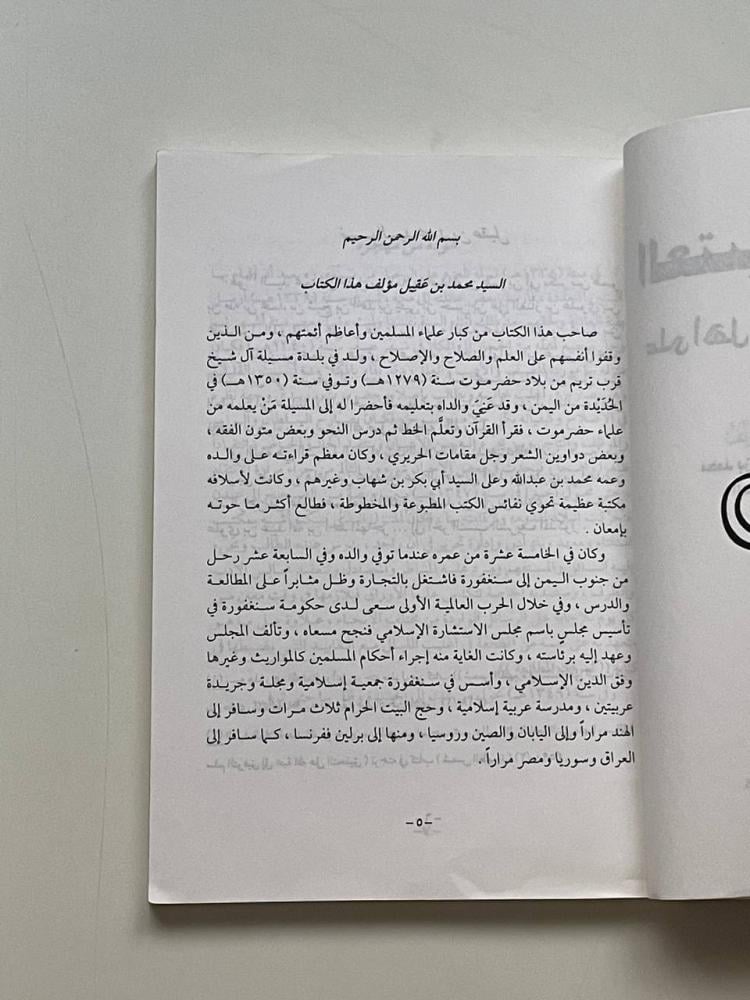 بسم الله الرحمن الرحيم
السيد محمد بن عَقيل مؤلف هذا الكتاب
صاحب هذا الكتاب من كبار علماء المسلمين وأعاظم أئمتهم ، ومـن الـذين
وقفوا أنفسهم على العلم والصلاح والإصلاح ، ولد في بلدة مسيلة آل شيخ
قرب تريم من بلاد حضرموت سنة (١٢٧٩هـ) وتـوفي سنة (١٣٥٠هـ) في
الحُدَيْدة من اليمن ، وقد عَنِيَ والداه بتعليمه فأحضرا له إلى المسيلة مَنْ يعلمه من
علماء حضرموت ، فقرأ القرآن وتعلَّم الخط ثم درس النحو وبعض متون الفقه ،
وبعض دواوين الشعر وجل مقامات الحريري ، وكان معظم قراءتـه على والده
وعمه محمد بن عبدالله وعلى السيد أبي بكر بن شهاب وغيرهم ، وكانت لأسلافه
مكتبة عظيمة تحوي نفائس الكتب المطبوعة والمخطوطة ، فطالع أكثـر مـا حوتـه
بإمعان .
وكان في الخامسة عشرة من عمره عندما توفي والده وفي السابعة عشر رحـل
من جنوب اليمن إلى سنغفورة فاشتغل بالتجارة وظل مثابراً على المطالعـة
والدرس ، وفي خلال الحرب العالمية الأولى سعى لـدى حكومة سنغفورة في
تأسيس مجلس باسم مجلس الاستشارة الإسلامي فنجح مسعاه ، وتألف المجلس
وعهد إليه برئاسته ، وكانت الغاية منه إجراء أحكام المسلمين كالمواريث وغيرها
وفق الدين الإسلامي ، وأسس في سنغفورة جمعية إسلامية ومجلة وجريدة
عربيتين ، ومدرسة عربية إسلامية ، وحج البيت الحرام ثلاث مـرات وسافر إلى
الهند مراراً وإلى اليابان والصين وروسيا ، ومنها إلى برلين ففرنسا ، كـما سـافر إلى
العراق وسوريا ومصر مراراً .
–٥–